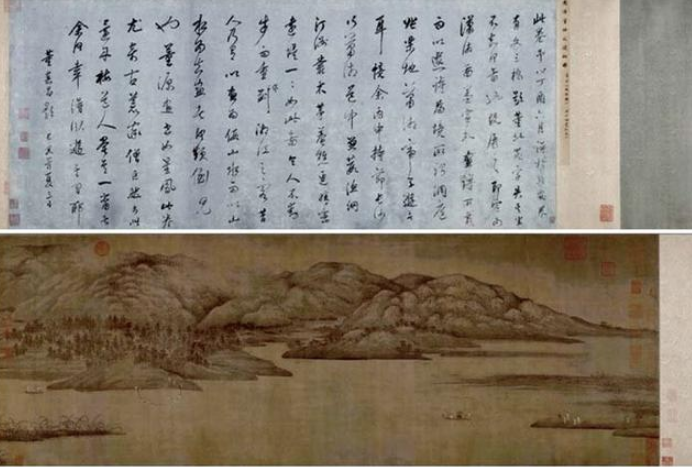 此卷予以丁酉六月得於長安卷
有文三橋題董北苑字失其半
不知何圖也既展之即定為
瀟湘圖蓋宣和畫譜所載
而以選詩為境所謂洞庭
張樂地瀟湘帝子遊
耳憶余丙申持節長沙
行瀟湘道中蒹葭漁網
汀洲叢木茅菴樵徑晴巒
遠堤一一如此圖令人不動
步而重作湘江之客昔
人乃有以畫為假山水而以山
水為真畫者何顛倒見
也董源畫世如星鳳此卷
尤奇古荒率僧巨然於此
還丹梅道人嘗其一臠者
余何幸得臥遊其間耶
董其昌題 己亥首夏三日